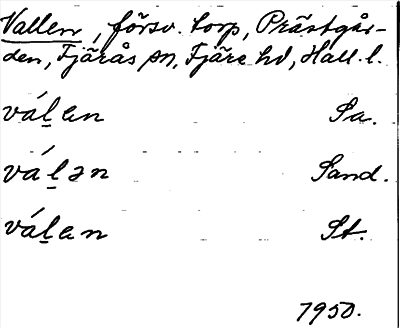 Vallen, försv. torp, Prästgår-
den, Fjärås sn, Fjäre hd, Hall. l.
vál̲an Sa.
vál̲ən Sand.
vál̲an St.
1950.